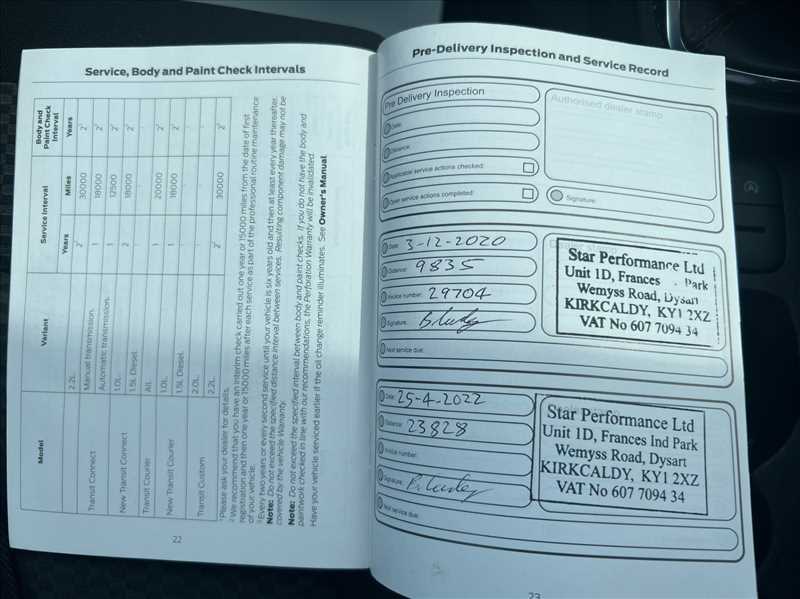 Service, Body and Paint Check Intervals
Model
Variant
Service Interval
Body and Paint Check Interval
Years
Miles
Years
2.2L
Transit Connect
Manual transmission.
30000
Automatic transmission.
1
18000
New Transit Connect
1.0L
12500
1.5L Diesel.
2
18000
Transit Courier
All.
New Transit Courier
1.0L
1
20000
1.5L Diesel.
1
18000
Transit Custom
2.0L
2.2L
30000
¹ Please ask your dealer for details.
² We recommend that you have an interim check carried out one year or 15000 miles from the date of first
registration and then one year or 15000 miles after each service as part of the professional routine maintenance
of your vehicle.
³ Every two years or every second service until your vehicle is six years old and then at least every year thereafter.
Note: Do not exceed the specified distance interval between services. Resulting component damage may not be
covered by the vehicle Warranty.
Note: Do not exceed the specified interval between body and paint checks. If you do not have the body and
paintwork checked in line with our recommendations, the Perforation Warranty will be invalidated.
Have your vehicle serviced earlier if the oil change reminder illuminates. See Owner's Manual.
22
Pre-Delivery Inspection and Service Record
Pre Delivery Inspection
Authorised dealer stamp
Date:
Distance:
Applicable service actions checked:
Open service actions completed:
Signature:
Date: 3-12-2020
Distance: 9835
Invoice number: 29704
Signature:
Next service due:
Star Performance Ltd
Unit 1D, Frances Park
Wemyss Road, Dysart
KIRKCALDY, KY1 2XZ
VAT No 607 7094 34
Date: 25-4-2022
Distance: 23828
Invoice number:
Signature:
Next service due:
Star Performance Ltd
Unit 1D, Frances Ind Park
Wemyss Road, Dysart
KIRKCALDY, KY1 2XZ
VAT No 607 7094 34
23